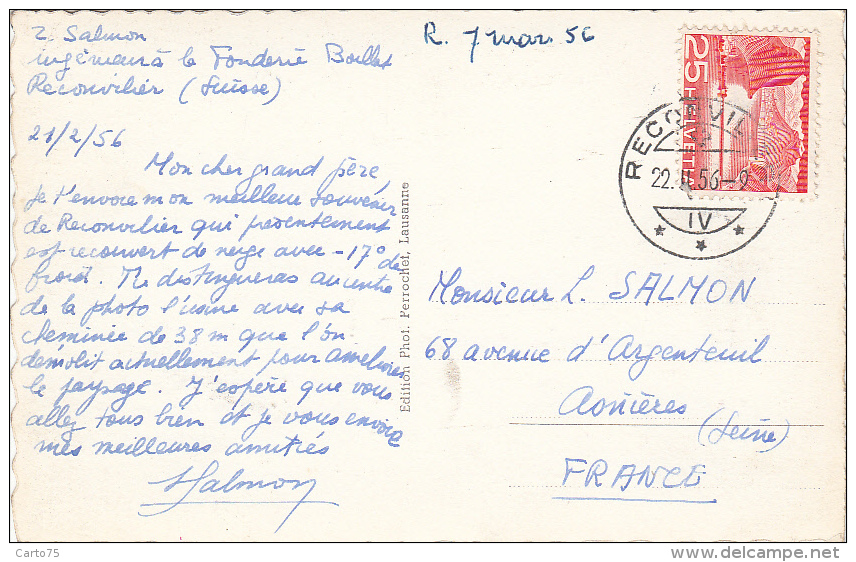 Z. Salmon
ingénieur à la Fonderie Boillat
Reconvilier (Suisse)
21/2/56
Mon cher grand père
je t'envoie mon meilleur souvenir
de Reconvilier qui présentement
est recouvert de neige avec -17° de
froid. Tu distingueras au centre
de la photo l'usine avec sa
cheminée de 38 m que l'on
démolit actuellement pour améliorer
le paysage. J'espère que vous
allez tous bien et je vous envoie
mes meilleures amitiés
Salmon
Edition Phot. Perrochet, Lausanne
R. 7 mars 56
25 HELVETIA
RECONVIL
22.II.56-9
IV
Monsieur L. SALMON
68 avenue d'Argenteuil
Asnières
(Seine)
FRANCE
Carto75
www.delcampe.net